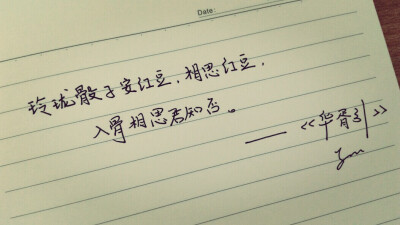 Date:
玲珑骰子安红豆,相思红豆,
入骨相思君知否。
——《华胥引》